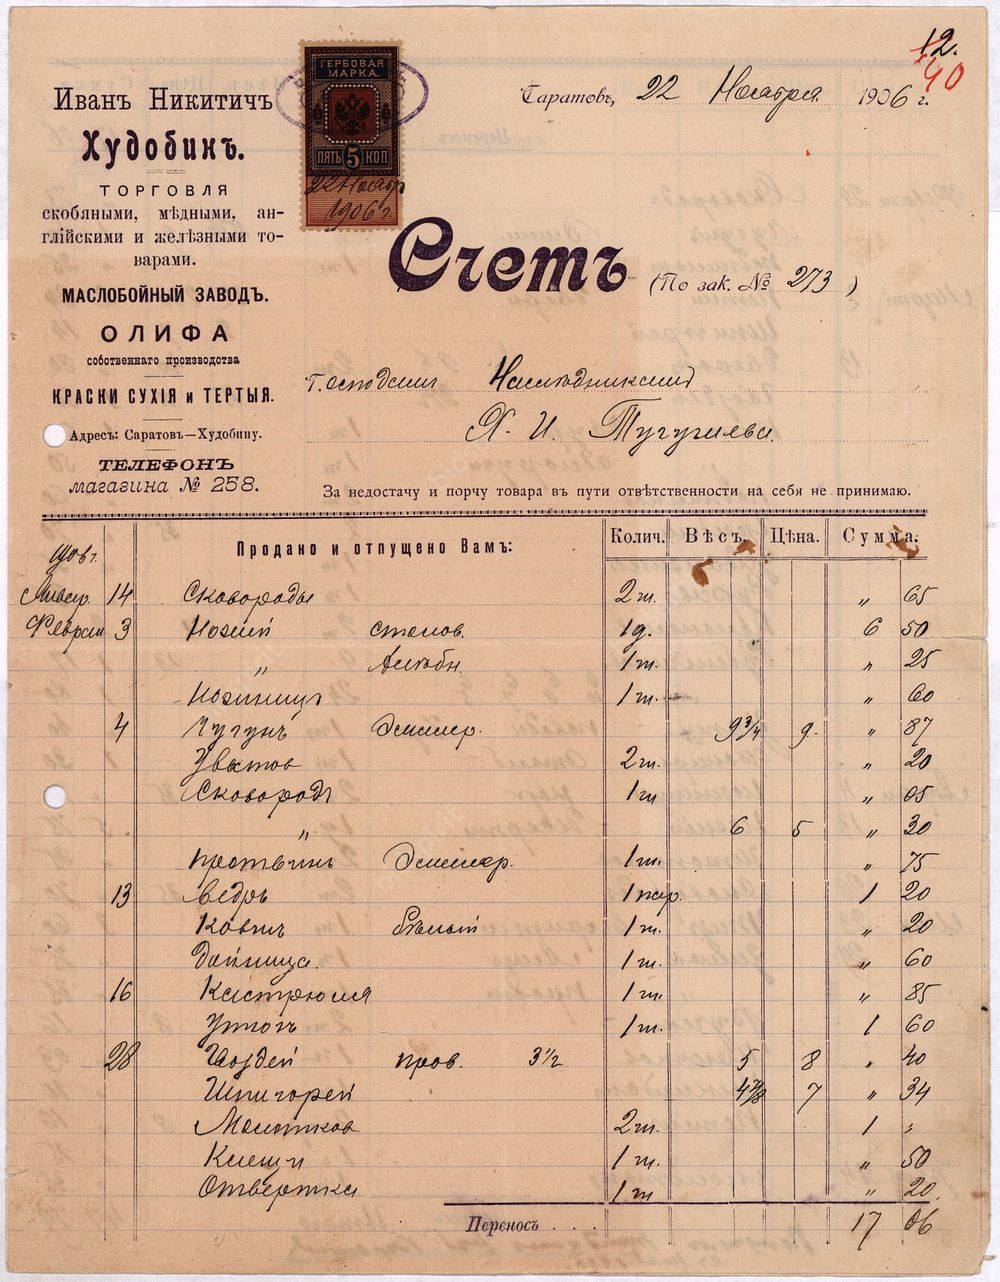 12.
40
Иванъ Никитичъ
Худобинъ.
ТОРГОВЛЯ
скобяными, мѣдными, ан-
глійскими и желѣзными то-
варами.
МАСЛОБОЙНЫЙ ЗАВОДЪ.
ОЛИФА
собственнаго производства
КРАСКИ СУХІЯ и ТЕРТЫЯ.
Адресъ: Саратовъ—Худобину.
ТЕЛЕФОНЪ
магазина № 258.
ГЕРБОВАЯ
МАРКА.
ПЯТЬ 5 КОП
22 Ноябр
1906 г.
Саратовъ, 22 Ноября 1906 г.
Счетъ (По зак. № 273)
Господамъ Наслѣдникамъ
Х. И. Тугушева.
За недостачу и порчу товара въ пути отвѣтственности на себя не принимаю.
Продано и отпущено Вамъ: Колич. Вѣсъ. Цѣна. Сумма.
Январ. 14 Сковороды 2 ш. „ 65
Феврал 3 Ножей столов. 1 д. 6 50
„ 1 ш. „ 25
Ножницъ 1 ш. „ 60
4 Чугунъ Эмалир. 9 3/4 9. „ 87
Ухватов 2 ш. „ 20
Сковородъ 1 ш „ 05
„ 6 5 „ 30
Противинь Эмалир. 1 ш. „ 75
13 Ведръ 1 пар. 1 20
Ковшъ бѣлый 1 ш. „ 20
Дойница. 1 ш. „ 60
16 Кастрюля 1 ш. „ 85
Утюгъ 1 ш. 1 60
28 Гвоздей пров. 3 1/2 5 8 „ 40
Шпигорей 4 7/8 7 „ 34
Молотков 2 ш. 1 „
Клещи 1 ш. „ 50
Отвертка 1 ш „ 20.
Переносъ . . . 17 06